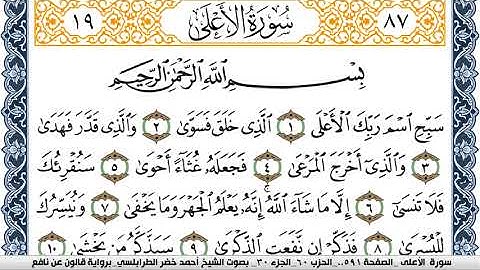 ١٩ سُورَةُ الأَعْلَى ٨٧
بِسْمِ اللَّهِ الرَّحْمَٰنِ الرَّحِيمِ
سَبِّحِ اسْمَ رَبِّكَ الْأَعْلَى ١ الَّذِي خَلَقَ فَسَوَّىٰ ٢ وَالَّذِي قَدَّرَ فَهَدَىٰ
٣ وَالَّذِي أَخْرَجَ الْمَرْعَىٰ ٤ فَجَعَلَهُ غُثَاءً أَحْوَىٰ ٥ سَنُقْرِئُكَ
فَلَا تَنسَىٰ ٦ إِلَّا مَا شَاءَ اللَّهُ إِنَّهُ يَعْلَمُ الْجَهْرَ وَمَا يَخْفَىٰ ٧ وَنُيَسِّرُكَ
لِلْيُسْرَىٰ ٨ فَذَكِّرْ إِن نَّفَعَتِ الذِّكْرَىٰ ٩ سَيَذَّكَّرُ مَن يَخْشَىٰ ١٠
سورة الأعلى _الصفحة ٥٩١.. الحزب ٦٠_الجزء ٣٠_ بصوت الشيخ أحمد خضر الطرابلسي_برواية قالون عن نافع